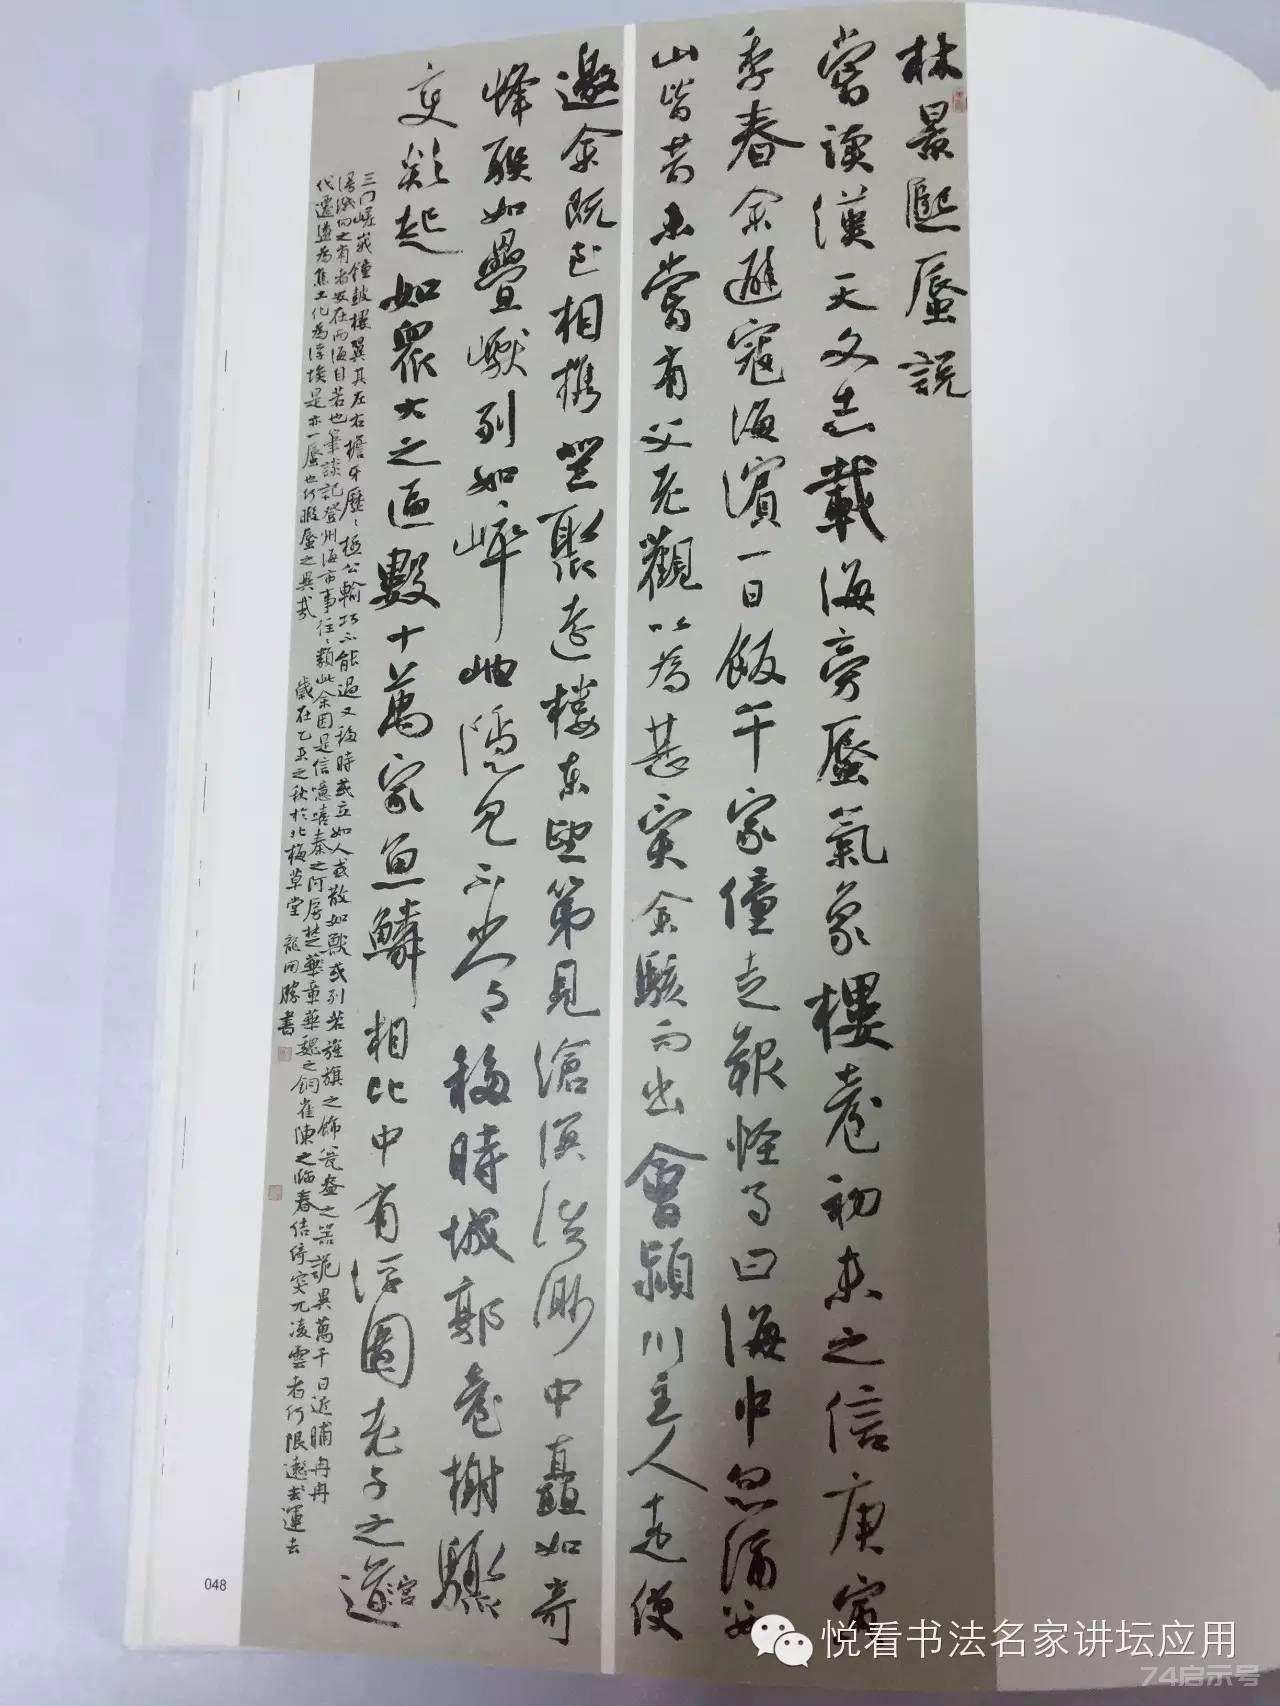 林景熙蜃説
嘗讀漢天文志載海旁蜃氣象樓臺初未之信庚寅
季春余避寇海濱一日飯午家僮走報怪事曰海中忽涌數
山皆昔未嘗有父老觀以為甚異余駭而出會潁川主人走使
邀余既至相攜登聚遠樓東望第見滄溟浩渺中矗如奇
峰聯如疊巘列如崒岫隱見不常移時城郭臺榭驟
變欻起如眾大之區數十萬家魚鱗相比中有浮圖老子之宮
三門嵯峨鐘鼓樓翼其左右檐牙歷歷極公輸巧不能過又移時或立如人或散如獸或列若旌旗之飾瓮盎之器詭異萬千日近晡冉冉
漫滅向之有者安在而海自若也筆談記登州海市事往往類此余因是信噫嘻秦之阿房楚之章華魏之銅雀陳之臨春結綺突兀凌雲者何限遠去運去
代遷蕩為焦土化為浮埃是亦一蜃也何暇蜃之異哉 歲在乙未之秋於北梅草堂 龍開勝書
048
悦看书法名家讲坛应用
74启示号